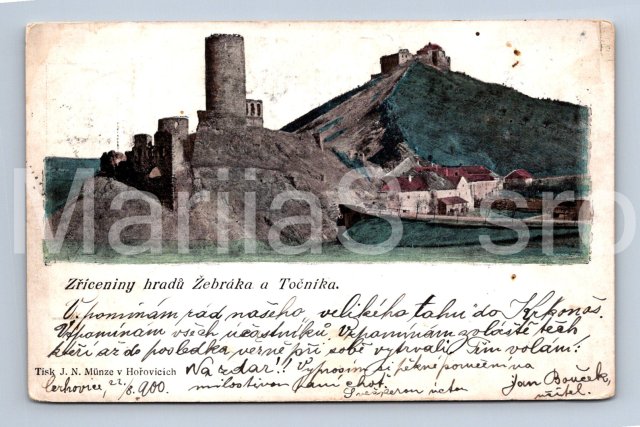 MarijaS sro
Zříceniny hradů Žebráka a Točníka.
Vzpomínám rád našeho velikého tahu do Krkonoš.
Vzpomínám všech účastníků. Vzpomínám zvláště těch
kteří až do posledka věrně při sobě vytrvali. Jim volám:
Na zdar!! Vyprosím si pěkné poručení na
milostivou paní choť.
Tisk J. N. Münze v Hořovicích
Cerhovice, 22/8. 900.
S úctou
Jan Bouček,
učitel.